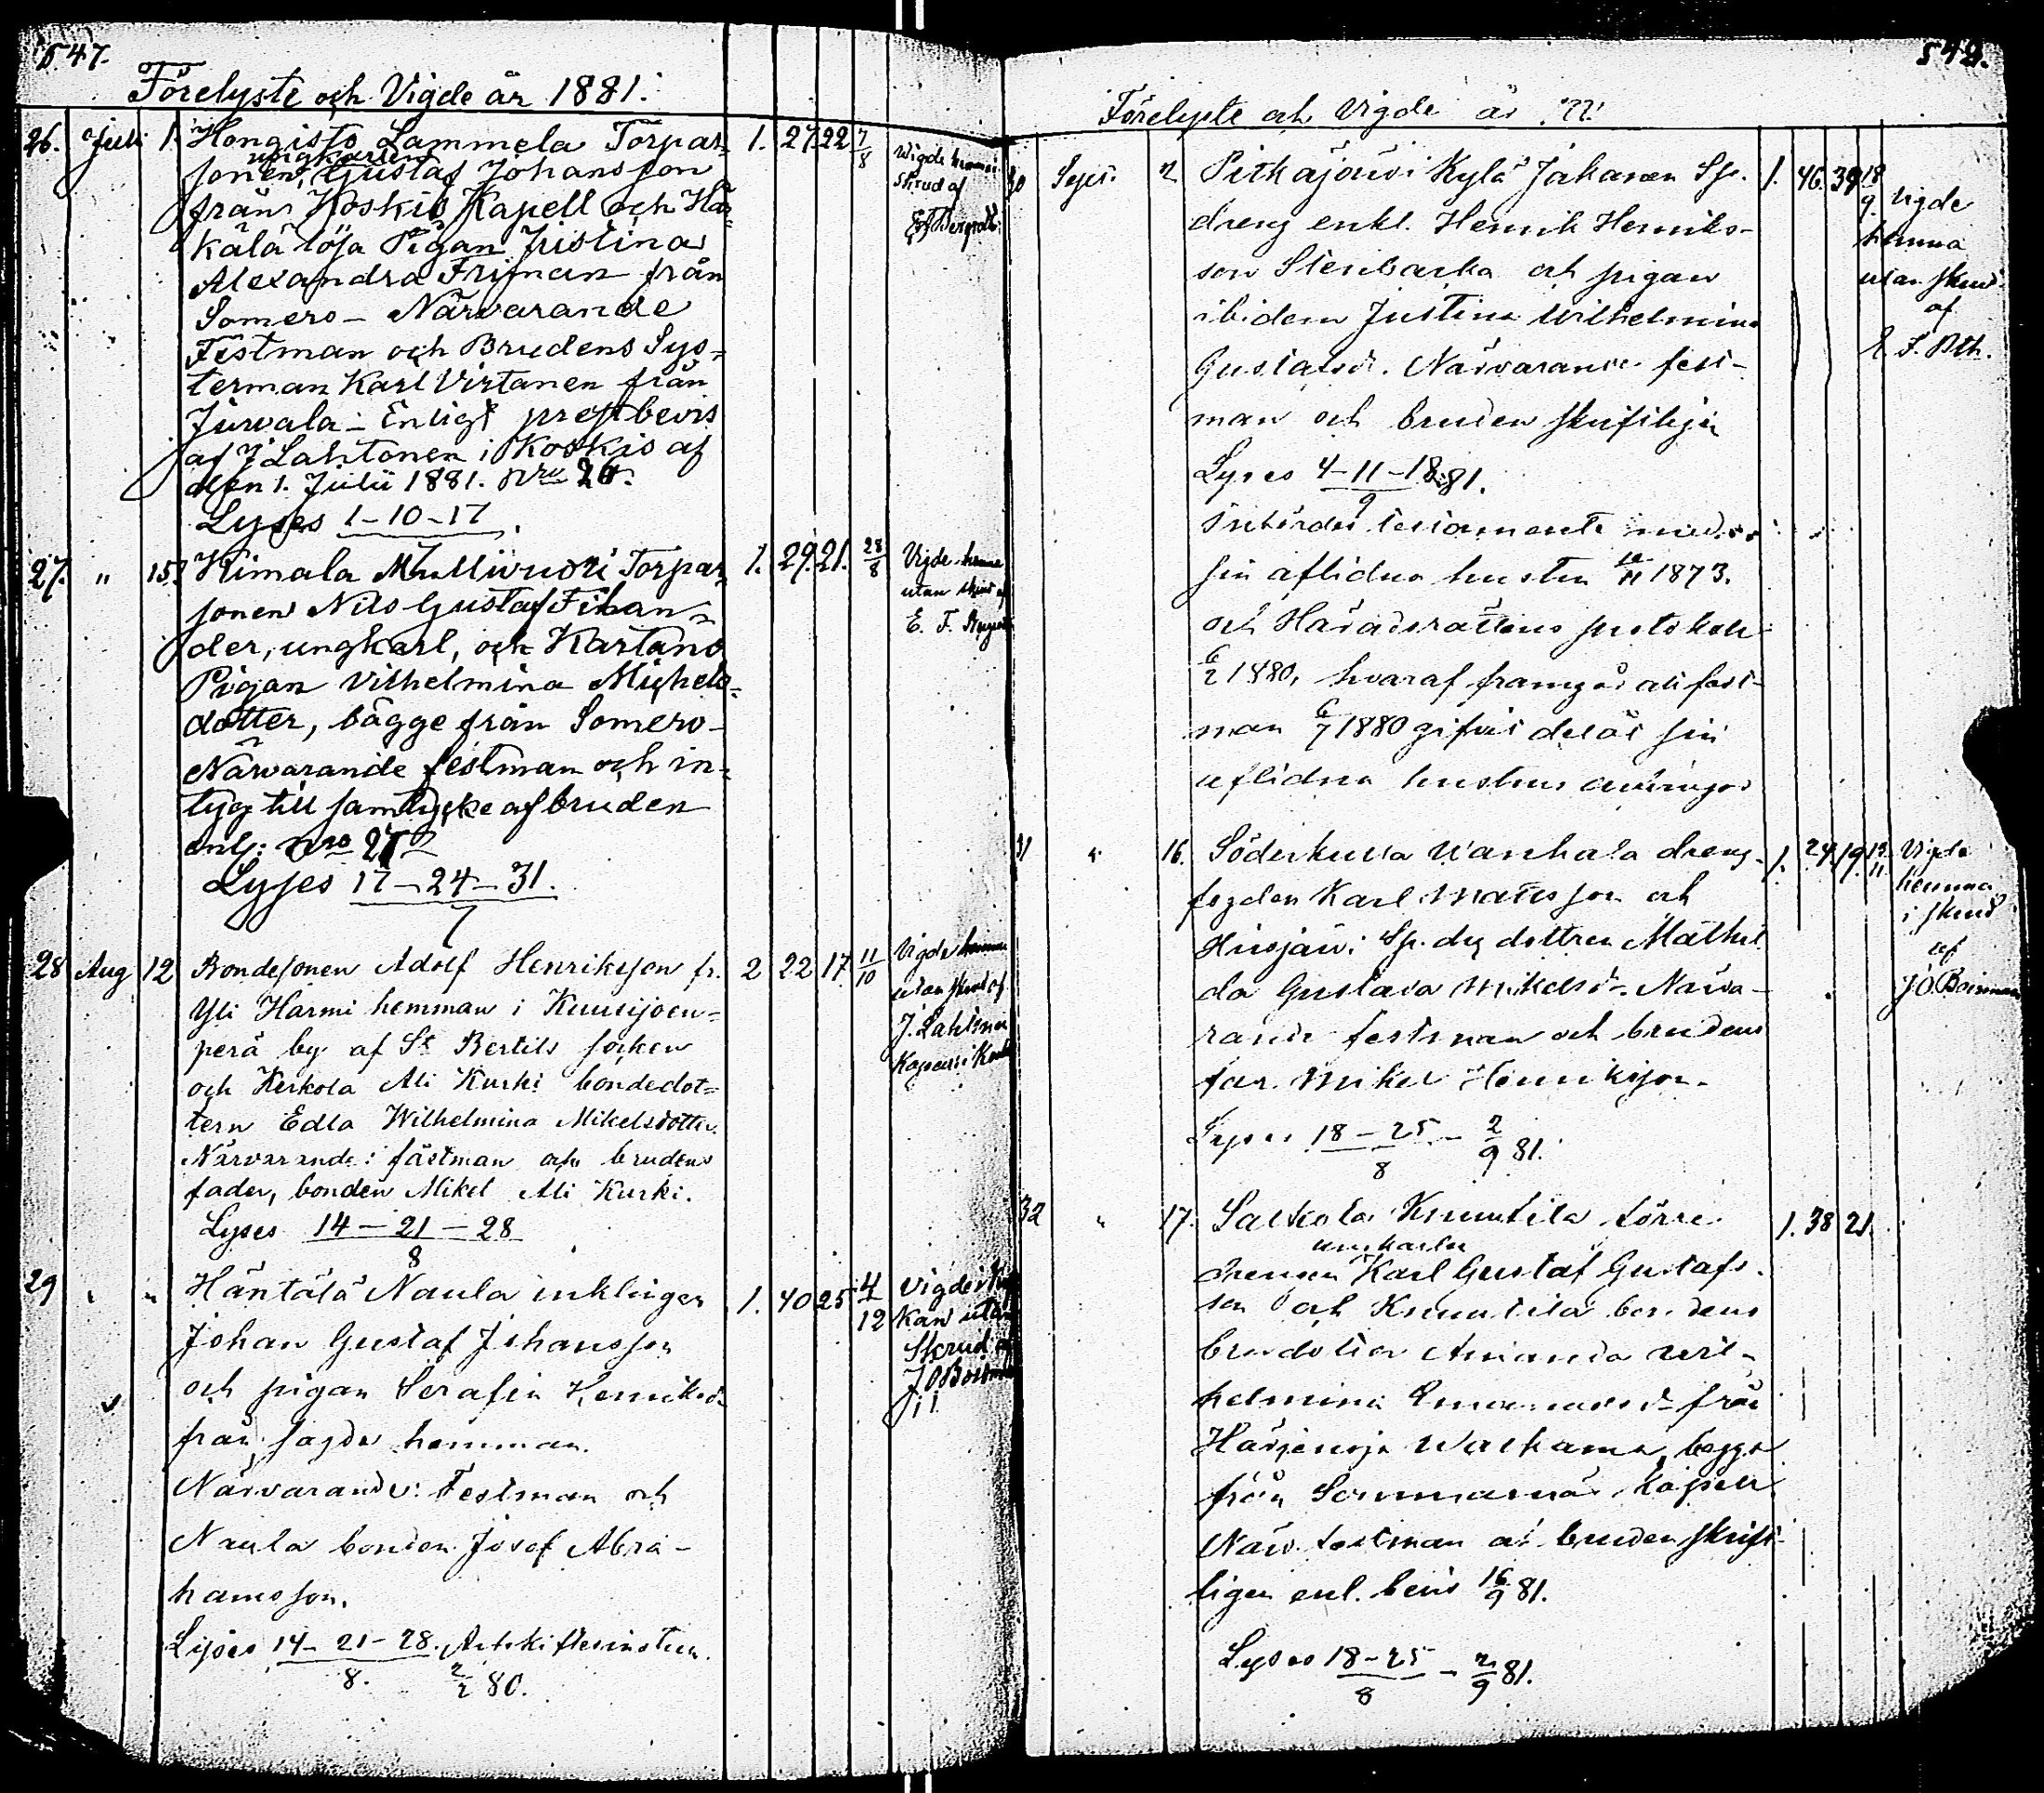 547.
Förelyste och Vigde är 1881.
26. Juli 1. Hongisto Lammela Torpar= 1. 27. 22 7/8
ungkarlen
sonen, Gustaf Johansson
från Koskis Kapell och Här=
kälä lösa Pigan Justina
Alexandra Friman från
Somero - Närvarande
Festman och Brudens Sys=
terman Karl Virtanen från
Jurvala - Enligt prestbevis
af J Lahtonen i Koskis af
den 1. Julii 1881. Nro 26.
Lyses 1-10-17
7
Vigde hemma
skrud af
27. " 15. Kimala Torpar= 1. 29. 21. 28/8
sonen Nils Gustaf
der, ungkarl, och Kartano
Pigan Vilhelmina Michels=
dotter, bägge från Somero -
Närvarande festman och in=
tyg till samtycke af bruden
enl: Nro 27
Lyses 17-24-31.
7
Vigde hemma
utan skrud af
E. F.
28 Aug 12 Bondesonen Adolf Henriksson fr. 2 22 17 11/10
Yli Harmi hemman i Kuusijoen=
perä by af St Bertils socken
och Kerkola Ali Kurki bondedot=
tern Edla Wilhelmina Mikelsdotter.
Närvarande: fästman och brudens
fader, bonden Mikel Ali Kurki.
Lyses 14-21-28
8
Vigde hemma
utan skrud af
J. Lahtonen
29 " " Häntälä Naula inhlingen 1. 40 25 4/12
Johan Gustaf Johansson
och pigan Serafin Henriksdr
från sagda hemman.
Närvarande: Festman och
Naula bonden Josef Abra-
hamsson.
Lyses 14-21-28.
8. 2/2 80.
Vigde i
Kan utan
Skrud af
J O
548.
Förelyste och Vigde är
30 Sept. 2 Pitkäjärvi Kylä Jakanen Sp. 1. 46. 39 18/9
dreng enkl. Henrik Henriks-
son Stenbacka och pigan
ibidem Justina Wilhelmina
Gustafsdr. Närvarande fest-
man och bruden skriftligen
Lyses 4-11-18 81.
9
testamente med
sin aflidna hustru 1873.
och Häradsrättens protokoll
6/2 1880, hvaraf framgår att fest-
man 6/7 1880 gifvit delät sin
aflidna hustrus arfvingar
Vigde
hemma
utan skrud
af
E. F. Bth.
31 " 16. Söderkulla Wanhala dreng- 1. 24 19.
fogden Karl Matsson och
Hirsjärvi Sp. drg dottren Mathil
da Gustava Mikelsdr. Närva-
rande festman och brudens
far Mikel Henriksson.
Lyses 18-25 - 2/9 81.
8
Vigde
hemma
i skrud
af
J O.
32 " 17. Salkola Knuutila 1. 38 21.
ungkarlen
drengen Karl Gustaf Gustafs-
son och Knuutila bondens
Amanda Wil-
helmina från
Walkama, begge
från kapell
Närv. festman och bruden skrift-
ligen enl. bevis 16/9 81.
Lyses 18-25 - 2/9 81.
8